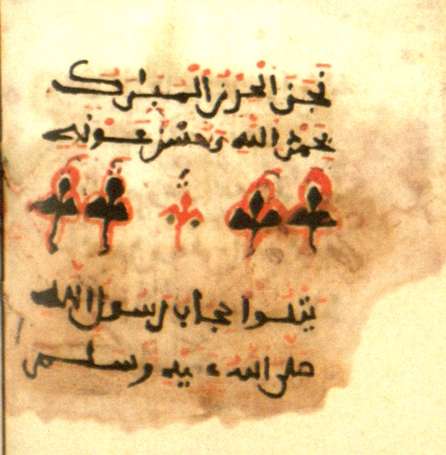 نجز الحرز المبارك
بحمد الله وحسن عونه
يتلوا حجاب رسول الله
صلى الله عليه وسلم